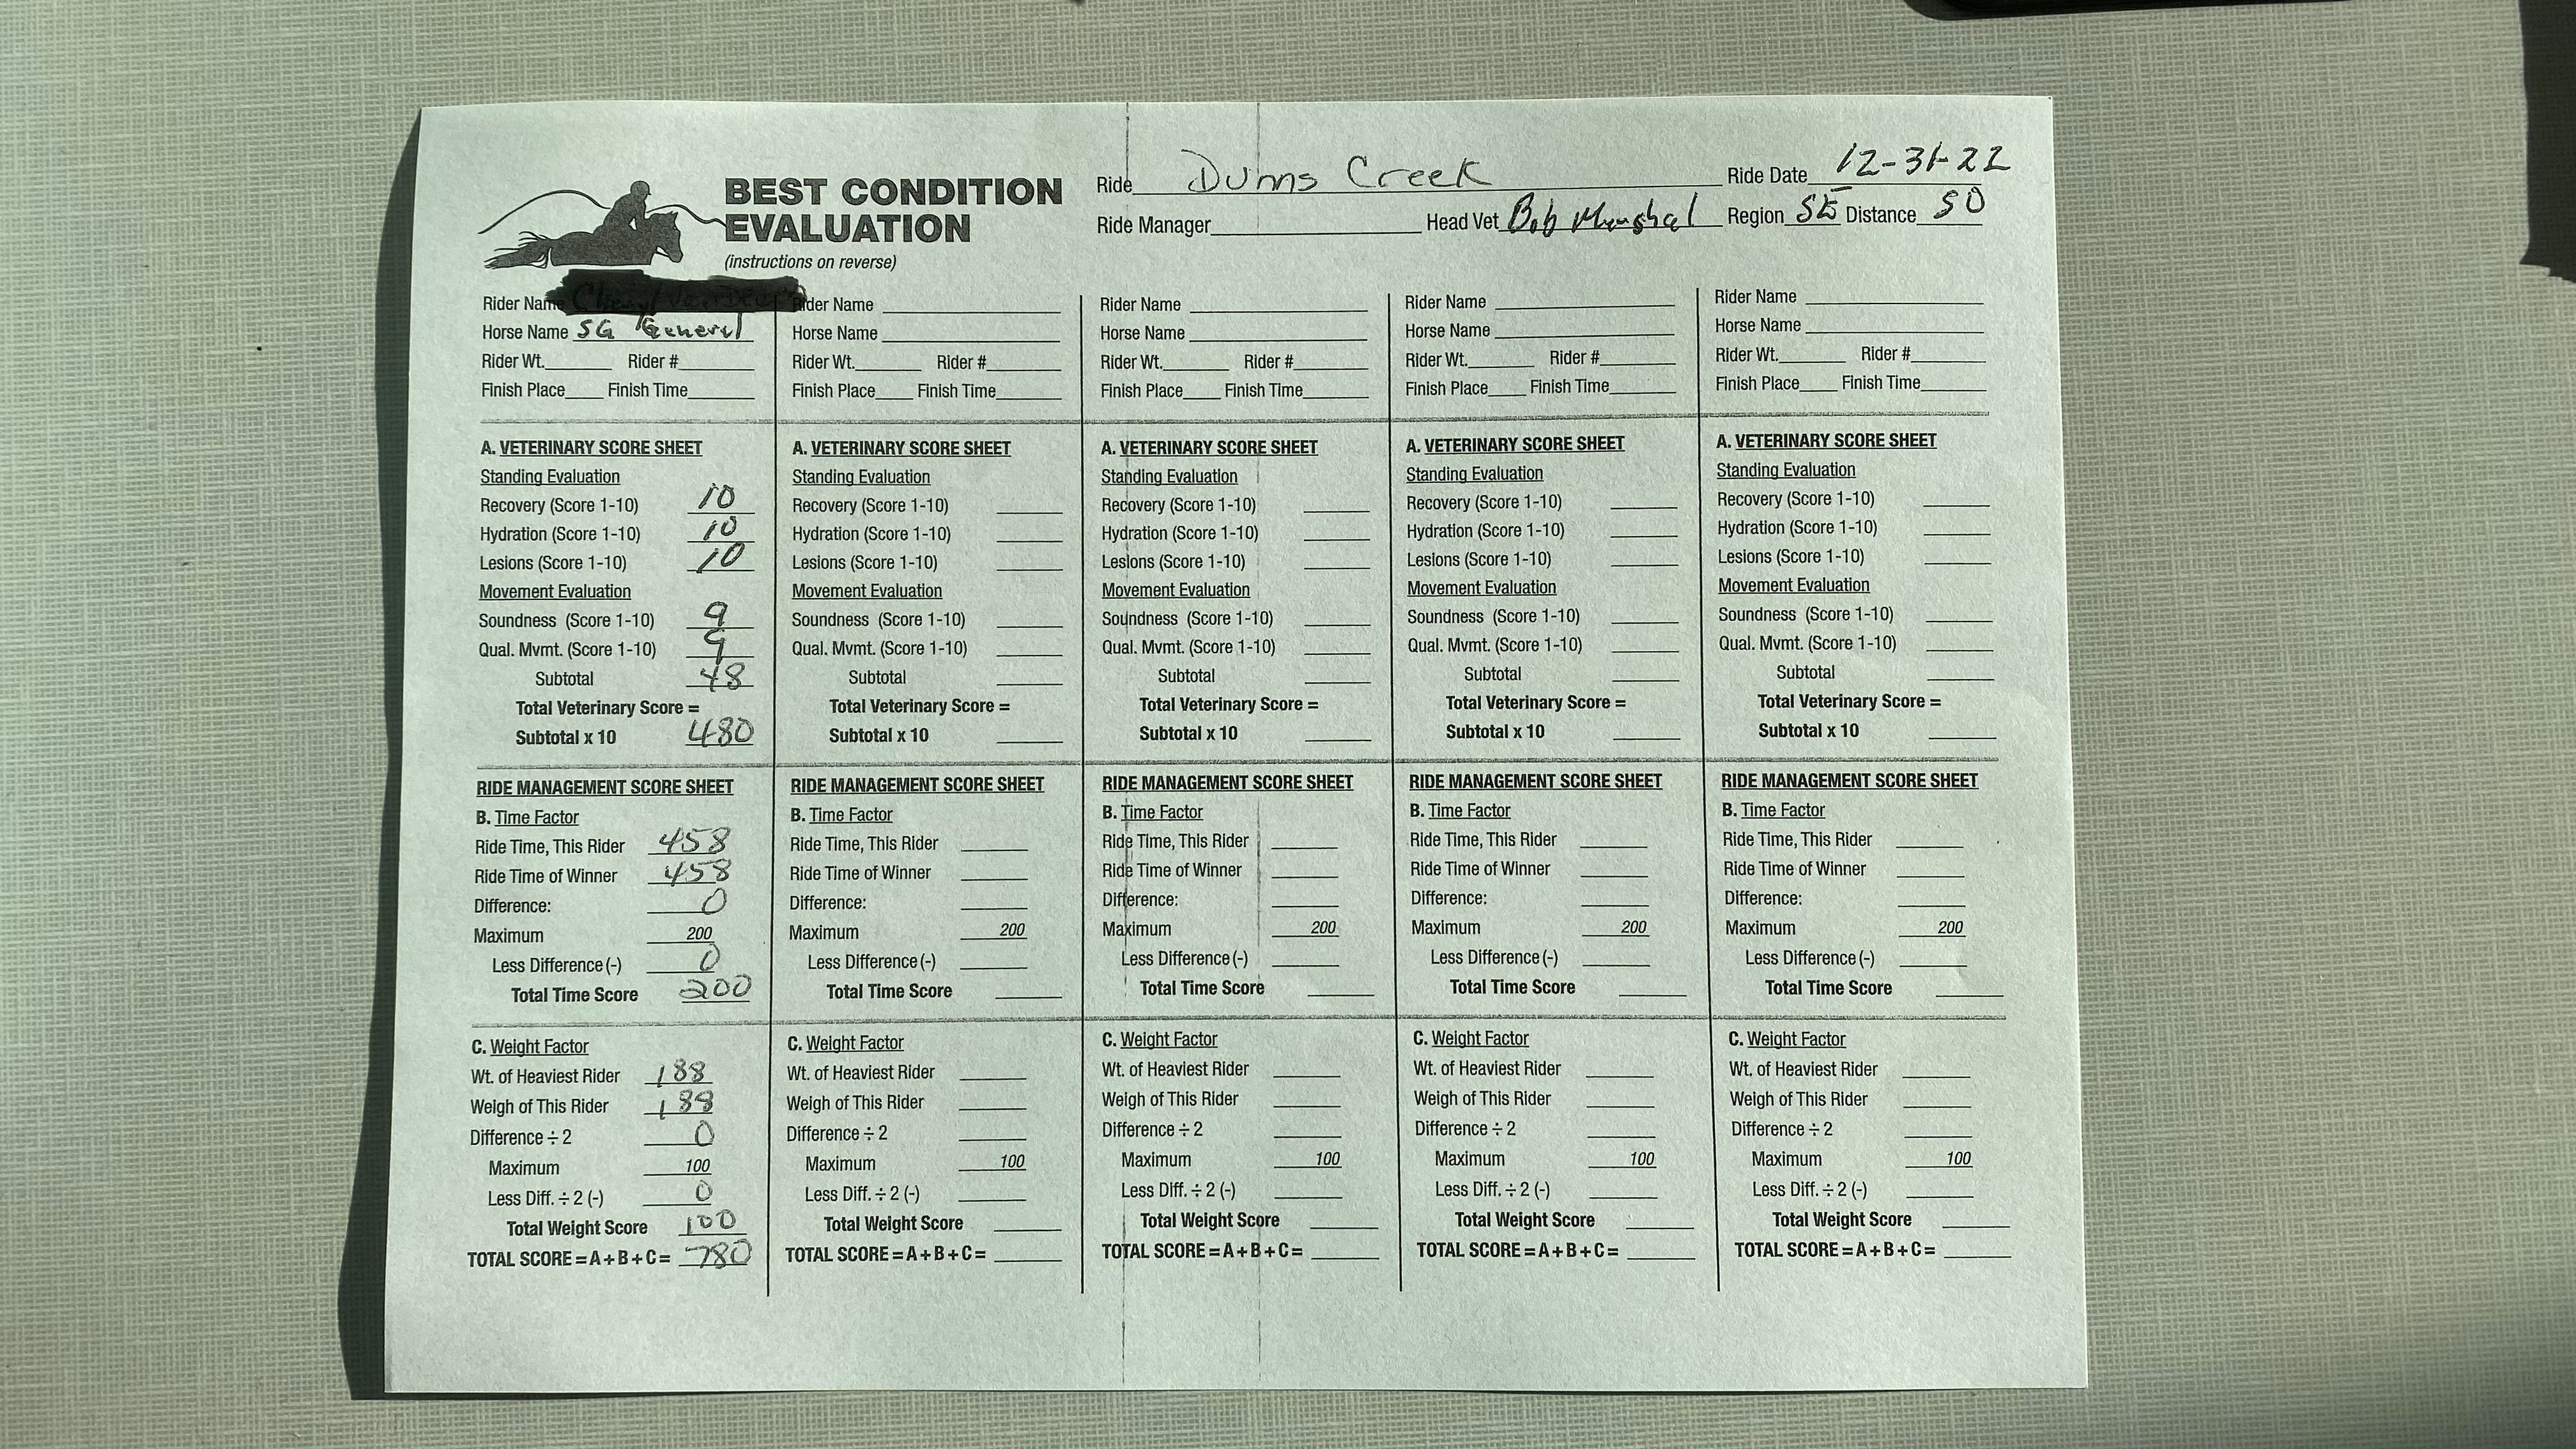 BEST CONDITION
EVALUATION
(instructions on reverse)
Ride Dunns Creek Ride Date 12-31-22
Ride Manager Head Vet Bob Marshal Region SE Distance 50
Rider Name
Horse Name SG General
Rider Wt. Rider #
Finish Place Finish Time
A. VETERINARY SCORE SHEET
Standing Evaluation
Recovery (Score 1-10) 10
Hydration (Score 1-10) 10
Lesions (Score 1-10) 10
Movement Evaluation
Soundness (Score 1-10) 9
Qual. Mvmt. (Score 1-10) 9
Subtotal 48
Total Veterinary Score =
Subtotal x 10 480
RIDE MANAGEMENT SCORE SHEET
B. Time Factor
Ride Time, This Rider 458
Ride Time of Winner 458
Difference: 0
Maximum 200
Less Difference (-) 0
Total Time Score 200
C. Weight Factor
Wt. of Heaviest Rider 188
Weigh of This Rider 188
Difference ÷ 2 0
Maximum 100
Less Diff. ÷ 2 (-) 0
Total Weight Score 100
TOTAL SCORE = A + B + C = 780
Rider Name
Horse Name
Rider Wt. Rider #
Finish Place Finish Time
A. VETERINARY SCORE SHEET
Standing Evaluation
Recovery (Score 1-10)
Hydration (Score 1-10)
Lesions (Score 1-10)
Movement Evaluation
Soundness (Score 1-10)
Qual. Mvmt. (Score 1-10)
Subtotal
Total Veterinary Score =
Subtotal x 10
RIDE MANAGEMENT SCORE SHEET
B. Time Factor
Ride Time, This Rider
Ride Time of Winner
Difference:
Maximum 200
Less Difference (-)
Total Time Score
C. Weight Factor
Wt. of Heaviest Rider
Weigh of This Rider
Difference ÷ 2
Maximum 100
Less Diff. ÷ 2 (-)
Total Weight Score
TOTAL SCORE = A + B + C =
Rider Name
Horse Name
Rider Wt. Rider #
Finish Place Finish Time
A. VETERINARY SCORE SHEET
Standing Evaluation
Recovery (Score 1-10)
Hydration (Score 1-10)
Lesions (Score 1-10)
Movement Evaluation
Soundness (Score 1-10)
Qual. Mvmt. (Score 1-10)
Subtotal
Total Veterinary Score =
Subtotal x 10
RIDE MANAGEMENT SCORE SHEET
B. Time Factor
Ride Time, This Rider
Ride Time of Winner
Difference:
Maximum 200
Less Difference (-)
Total Time Score
C. Weight Factor
Wt. of Heaviest Rider
Weigh of This Rider
Difference ÷ 2
Maximum 100
Less Diff. ÷ 2 (-)
Total Weight Score
TOTAL SCORE = A + B + C =
Rider Name
Horse Name
Rider Wt. Rider #
Finish Place Finish Time
A. VETERINARY SCORE SHEET
Standing Evaluation
Recovery (Score 1-10)
Hydration (Score 1-10)
Lesions (Score 1-10)
Movement Evaluation
Soundness (Score 1-10)
Qual. Mvmt. (Score 1-10)
Subtotal
Total Veterinary Score =
Subtotal x 10
RIDE MANAGEMENT SCORE SHEET
B. Time Factor
Ride Time, This Rider
Ride Time of Winner
Difference:
Maximum 200
Less Difference (-)
Total Time Score
C. Weight Factor
Wt. of Heaviest Rider
Weigh of This Rider
Difference ÷ 2
Maximum 100
Less Diff. ÷ 2 (-)
Total Weight Score
TOTAL SCORE = A + B + C =
Rider Name
Horse Name
Rider Wt. Rider #
Finish Place Finish Time
A. VETERINARY SCORE SHEET
Standing Evaluation
Recovery (Score 1-10)
Hydration (Score 1-10)
Lesions (Score 1-10)
Movement Evaluation
Soundness (Score 1-10)
Qual. Mvmt. (Score 1-10)
Subtotal
Total Veterinary Score =
Subtotal x 10
RIDE MANAGEMENT SCORE SHEET
B. Time Factor
Ride Time, This Rider
Ride Time of Winner
Difference:
Maximum 200
Less Difference (-)
Total Time Score
C. Weight Factor
Wt. of Heaviest Rider
Weigh of This Rider
Difference ÷ 2
Maximum 100
Less Diff. ÷ 2 (-)
Total Weight Score
TOTAL SCORE = A + B + C =